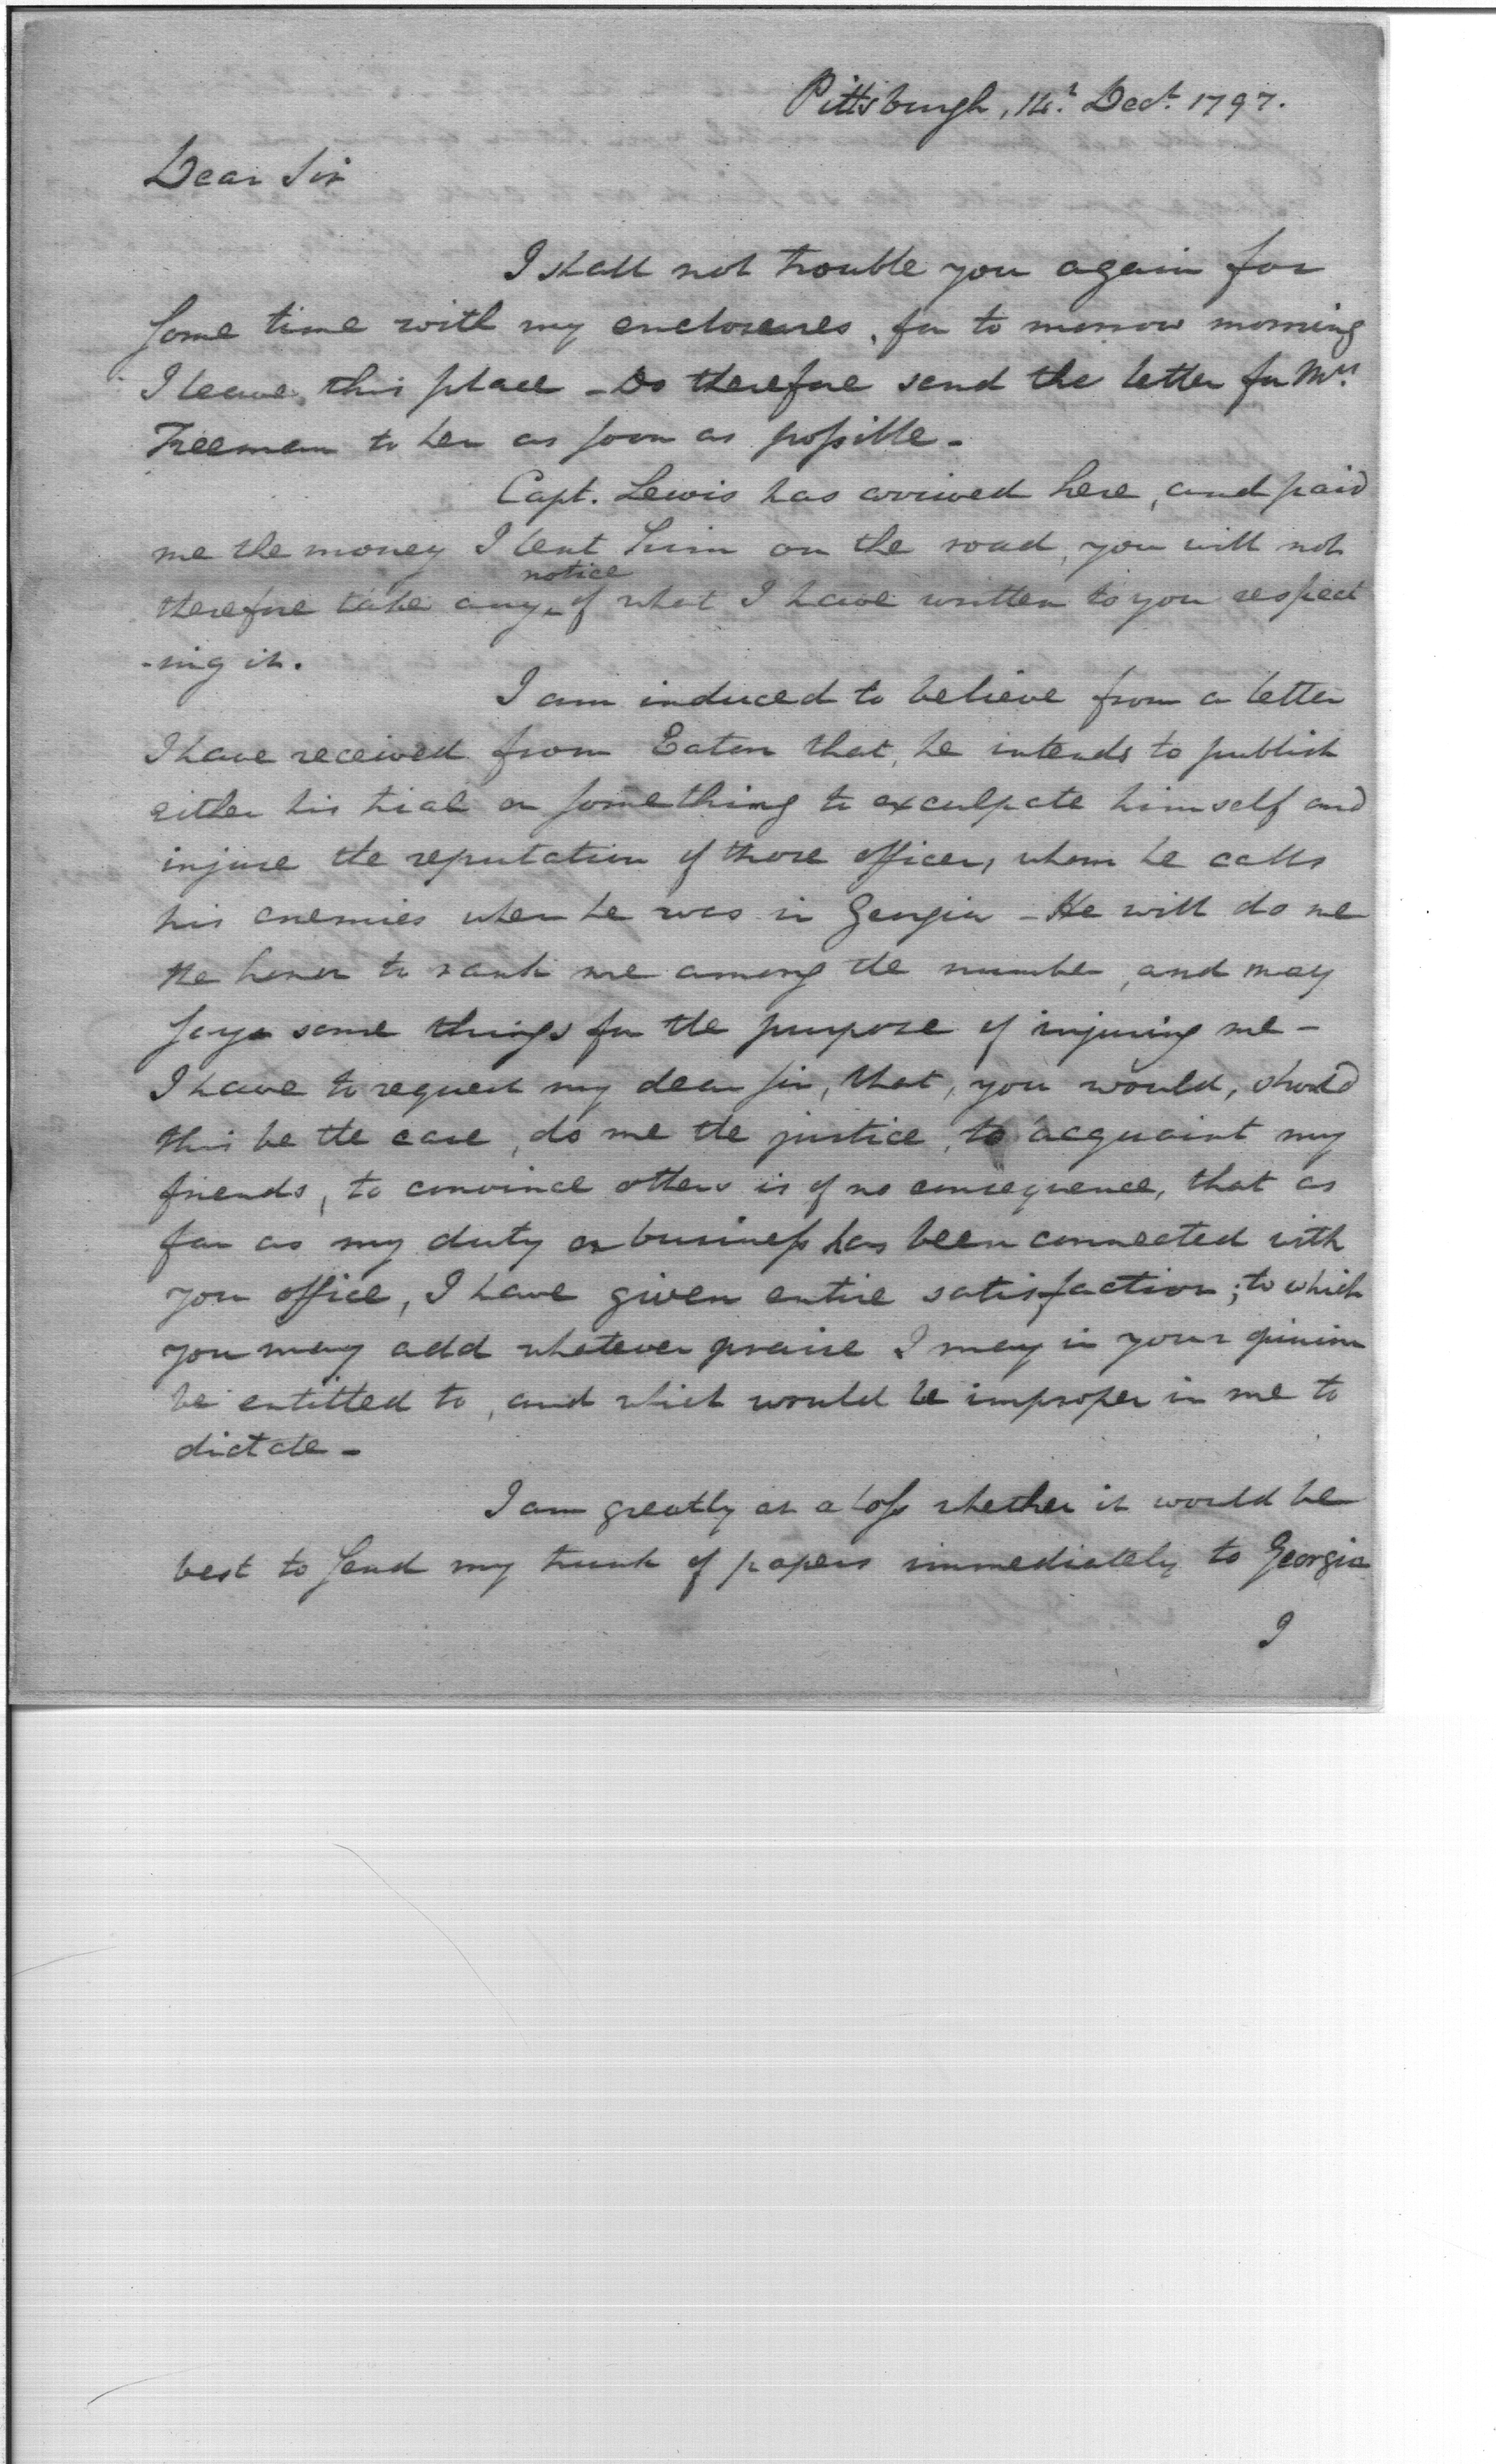 Pittsburgh, 14th. Decr. 1797.
Dear Sir
I shall not trouble you again for
some time with my enclosures, for to morrow morning
I leave this place - Do therefore send the letter for Mrs.
Freeman to her as soon as possible -
Capt. Lewis has arrived here, and paid
me the money I lent him on the road, you will not
notice
therefore take any ^ of what I have written to you respect
-ing it.
I am induced to believe from a letter
I have received from Eaton that, he intends to publish
either his trial or something to exculpate himself and
injure the reputation of those officers, whom he calls
his enemies when he was in Georgia - He will do me
the honor to rank me among the number, and may
say some things for the purpose of injuring me -
I have to request my dear sir, that, you would, should
this be the case, do me the justice, to acquaint my
friends, to convince others is of no consequence, that as
far as my duty or business has been connected with
your office, I have given entire satisfaction; to which
you may add whatever praise I may in your opinion
be entitled to, and which would be improper in me to
dictate -
I am greatly at a loss whether it would be
best to send my trunk of papers immediately to Georgia
I